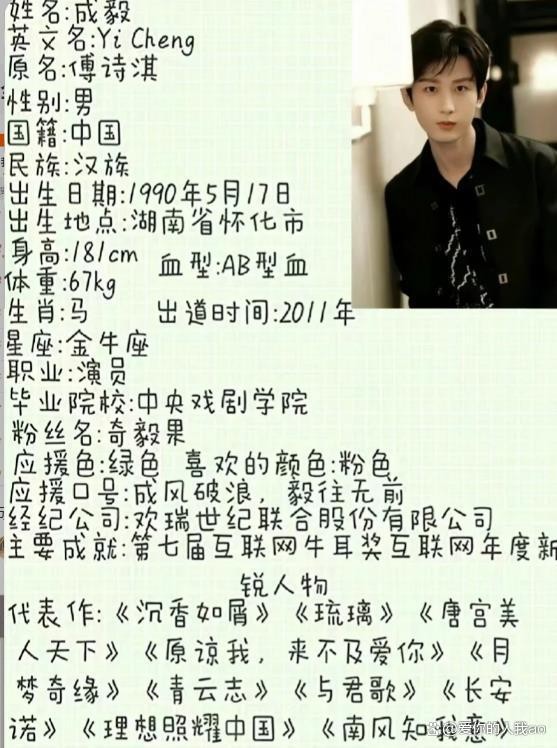 姓名:成毅
英文名:Yi Cheng
原名:傅诗淇
性别:男
国籍:中国
民族:汉族
出生日期:1990年5月17日
出生地点:湖南省怀化市
身高:181cm 血型:AB型血
体重:67kg
生肖:马 出道时间:2011年
星座:金牛座
职业:演员
毕业院校:中央戏剧学院
粉丝名:奇毅果
应援色:绿色 喜欢的颜色:粉色
应援口号:成风破浪，毅往无前
经纪公司:欢瑞世纪联合股份有限公司
主要成就:第七届互联网牛耳奖互联网年度新
锐人物
代表作:《沉香如屑》《琉璃》《唐宫美
人天下》《原谅我，来不及爱你》《月
梦奇缘》《青云志》《与君歌》《长安
诺》《理想照耀中国》《南风知我意》
爱你的人我ao